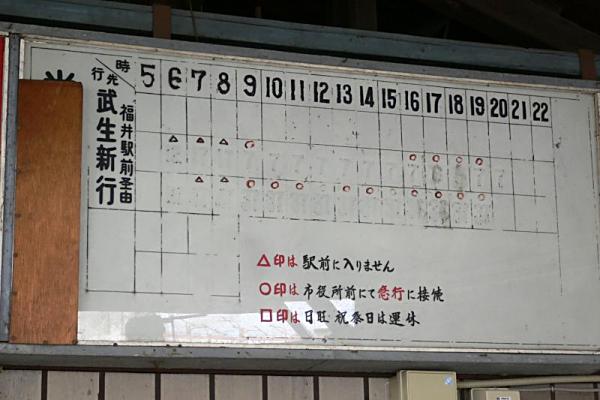 時
行先
5 6 7 8 9 10 11 12 13 14 15 16 17 18 19 20 21 22
福井駅前経由
武生新行
△印は 駅前に入りません
○印は 市役所前にて急行に接続
□印は 日旺 祝祭日は運休